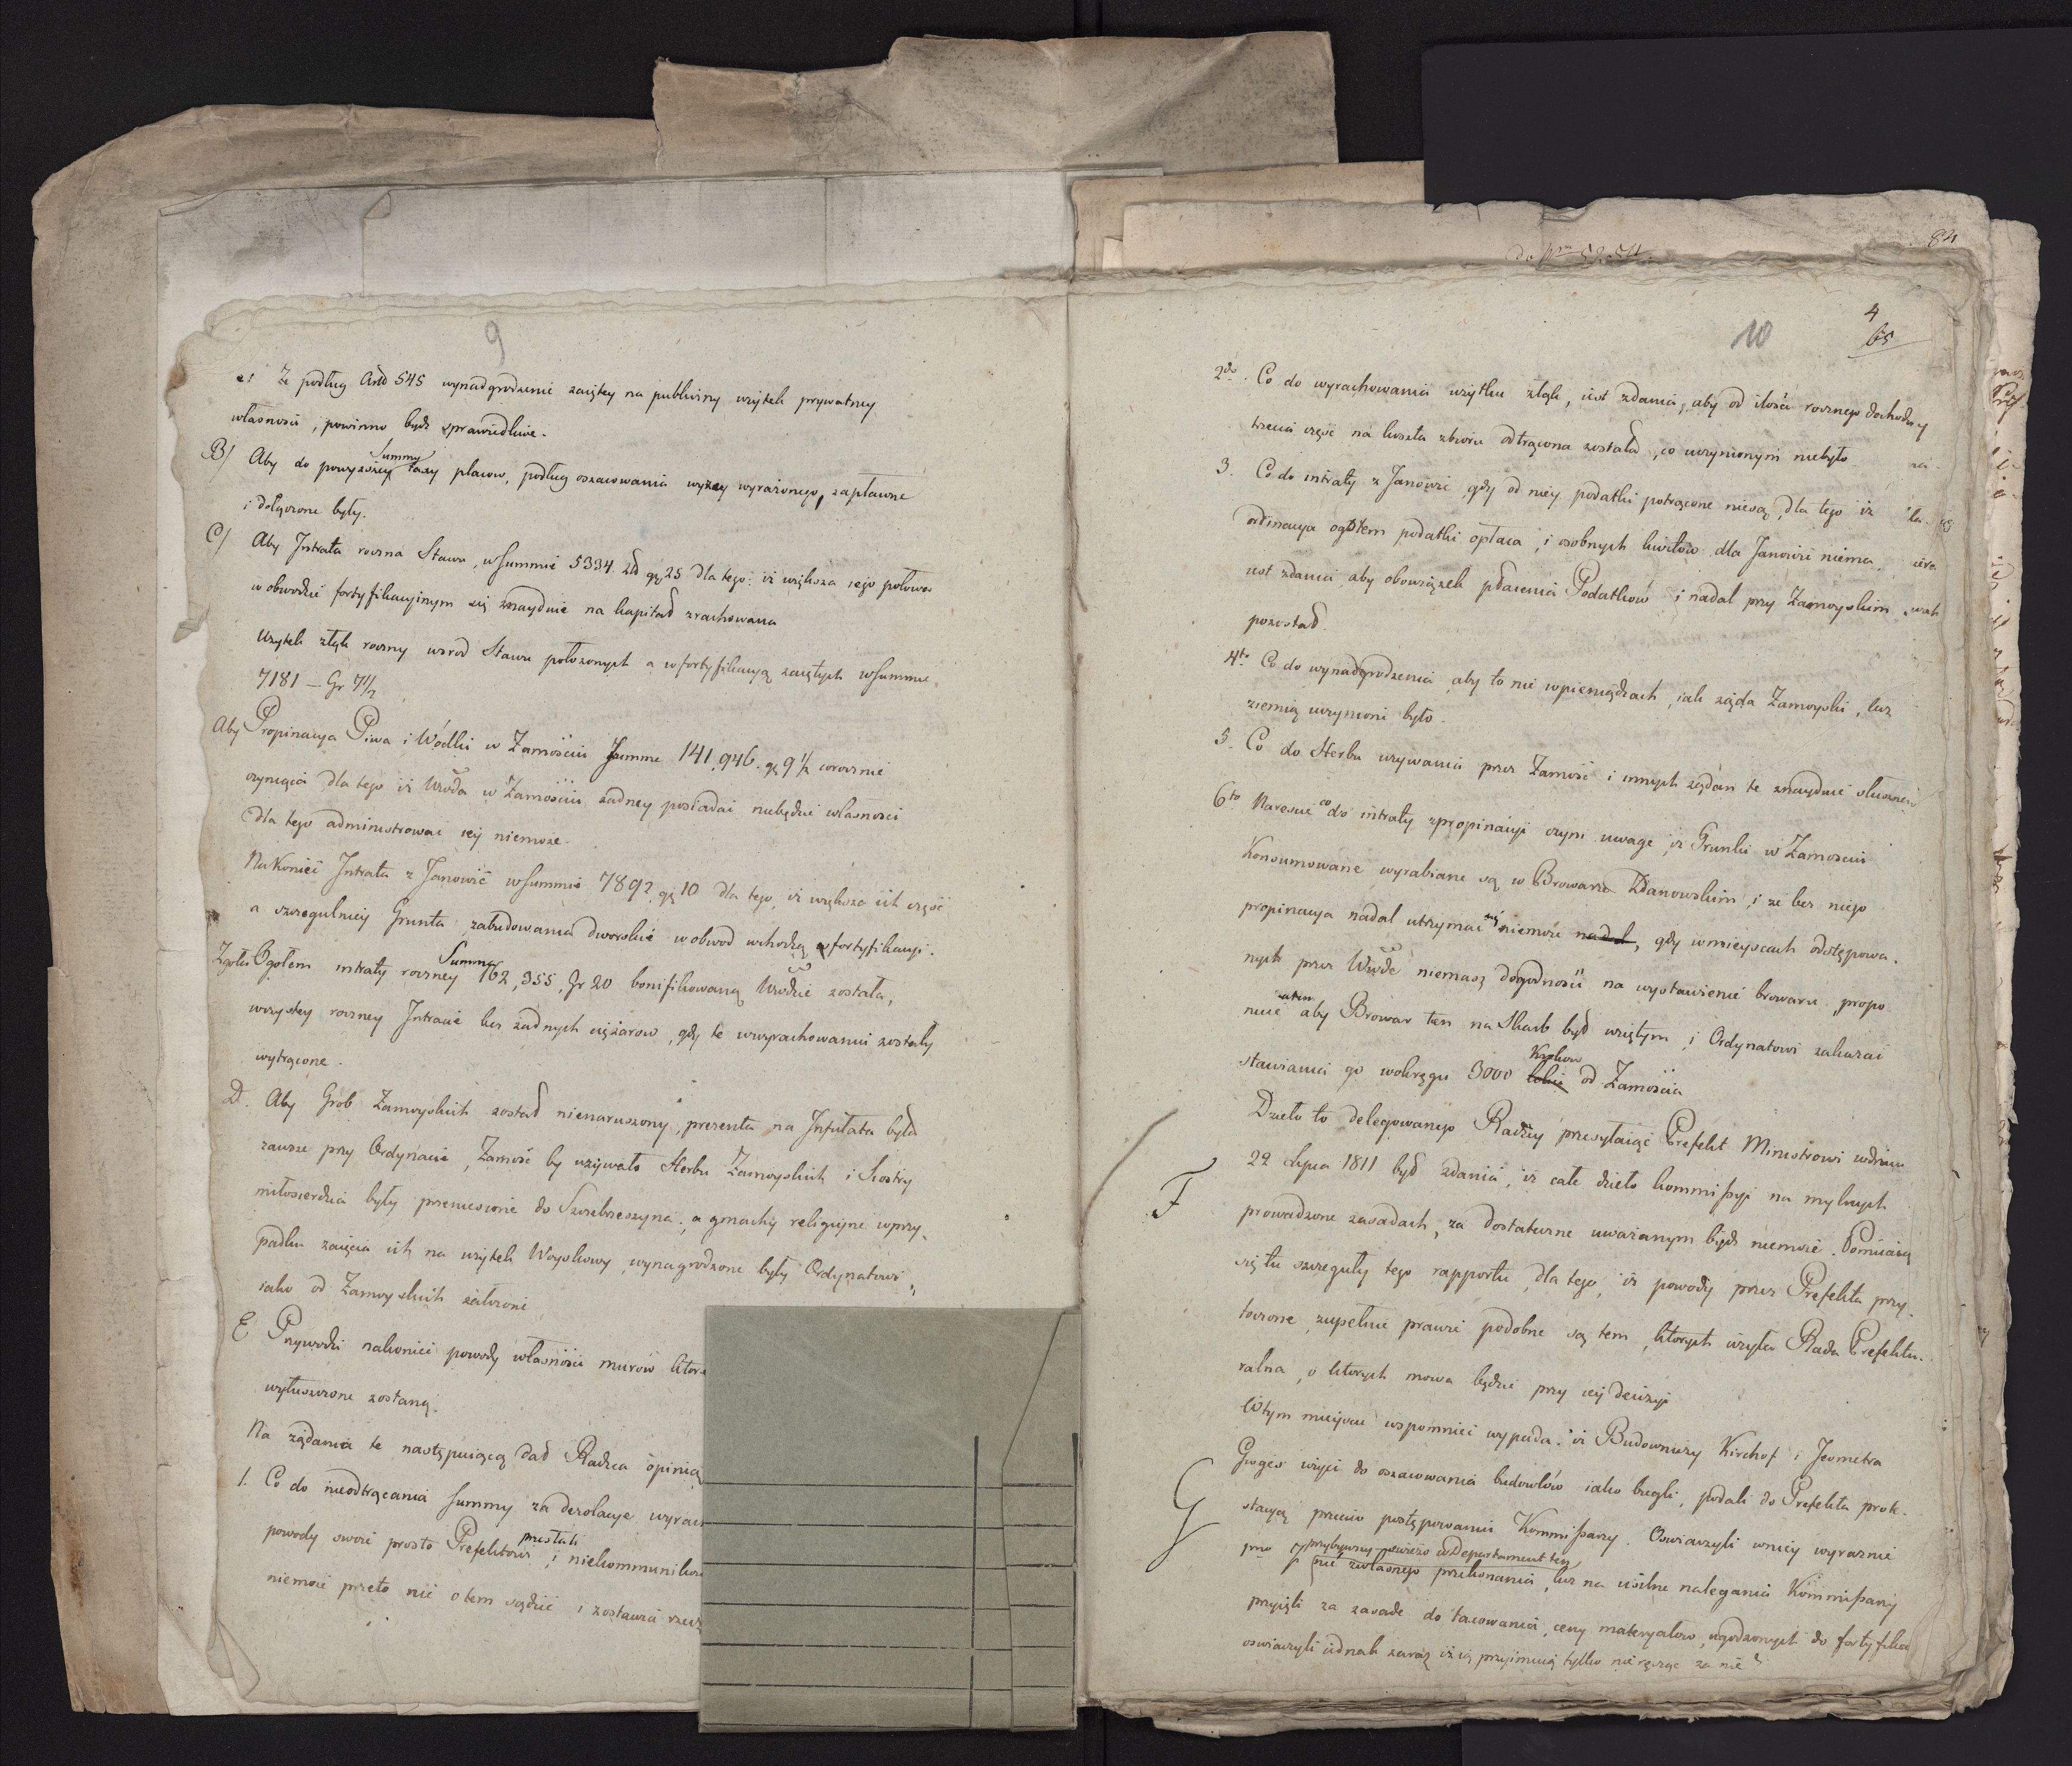 9
Ze podług Artt 545 wynadgrodzenie zaiętey na publiczny użytek prywatney
własności, powinno bydź sprawiedliwe.
B/ Aby do powyższey Summy taxy placow, podług oszacowania wyżey wyrażonego, zapłacone
i dołączone były.
C/ Aby Intrata roczna Stawu, w Summie 5334 Zł gr 25 dla tego: iż większa iego połowa
w obwodzie fortyfikacyinym się znayduie na kapitał zrachowana
Użytek złąk roczny wsrod Stawu położonych a w fortyfikacyą zaiętych w Summie
7181 – Gr 7 1/2
Aby Propinacya Piwa i Wódki w Zamościu Summe 141,946 gr 9 1/2 corocznie
czyniąca dla tego iż Wżoda w Zamościu żadney posiadać niebędzie własności
dla tego administrować iey niemoże.
Nakoniec Intrata z Janowic w Summie 7892 gr 10 dla tego, iż większa ich część
a szczegulniey Grunta, zabudowania dworskie w obwod wchodzą fortyfikacyi.
Zgoła Ogołem intraty roczney Summa 162,355, Gr 20 bonifikowaną Wżodzie została,
wszystey roczney Intracie bez żadnych ciężarow, gdy te w wyrachowaniu zostały
wytrącone.
D. Aby Grob Zamoyskich został nienaruszony, prezenta na Infułata była
zawsze przy Ordynacie, Zamość by używało Herbu Zamoyskich i Siostry
miłosierdzia były przeniesione do Szczebrzeszyna, a gmachy religiyne w przy-
padku zaięcia ich na użytek Woyskowy wynagrodzone były Ordynatowi,
iako od Zamoyskich założone
E Przywodzi nakoniec powody własności murow
wyłuszczone zostaną.
Na żądania te następuiącą dał Radzca opinią
1. Co do nieodtrącania Summy za dezolacye
powody swoie prosto Prefektowi przesłali, i
niemoże przeto nic o tem sądzić i zostawia
84
4
65
10
2do. Co do wyrachowania użytku złąk, iest zdania, aby od ilości rocznego dochodu
trzecia część na koszta zbioru odtrącona została, co uczynionym niebyło
3. Co do intraty z Janowic gdy od niey podatki potrącone niesą, dla tego iż
ordinacya ogołem podatki opłaca, i osobnych kwitow dla Janowic niema.
iest zdania, aby obowiązek płacenia Podatków i nadal przy Zamoyskim
pozostał.
4to Co do wynadgrodzenia aby to nie w pieniądzach, iak żąda Zamoyski, lecz
ziemią uczynione było.
5. Co do Herbu używania przez Zamość i innych żądan te znayduie słuszne
6to Nareszcie co do intraty z propinacyi czyni uwagę, iż Trunki w Zamościu
Konsumowane wyrabiane są w Browarze Zdanowskim, i że bez niego
propinacya nadal utrzymać się niemoże nadal, gdy w mieyscach odstępowa-
nych przez Wżode niemasz dogodności na wystawienie browaru, propo
nuie aby Browar ten na Skarb był wziętym i Ordynatowi zakazać
stawiania go w okręgu 3000 Krokow od Zamościa
Dzieło to delegowanego Radzcy przesyłaiąc Prefekt Ministrowi w dniu
F 22 Lipca 1811 był zdania, iż całe dzieło kommissyi na mylnych
prowadzone zasadach, za dostateczne uważanym bydź niemoże. Pomiiaią
się tu szczeguły tego rapportu, dla tego, iż powody przez Prefekta przy-
toczone zupełnie prawie podobne są tem, których użyła Rada Prefektu-
ralna, o których mowa będzie przy iey decizyi
W tym mieyscu wspomnieć wypada, iż Budowniczy Kirchof i Jeometra
G wzięci do oszacowania budowlów iako biegli, podali do Prefekta prote-
stacyą przeciw postępowaniu Kommissarzy. Oswiadczyli w niey wyraznie
1mo przybywszy swieżo w Departament ten
nie z własnego przekonania, lecz na usilne nalegania Kommissarzy
przyięli za zasade do taxowania, ceny materyałow, ugodzonych do fortyfika
oswiadczyli iednak zaraz iż ią przyimuią tylko nie ręcząc za nie